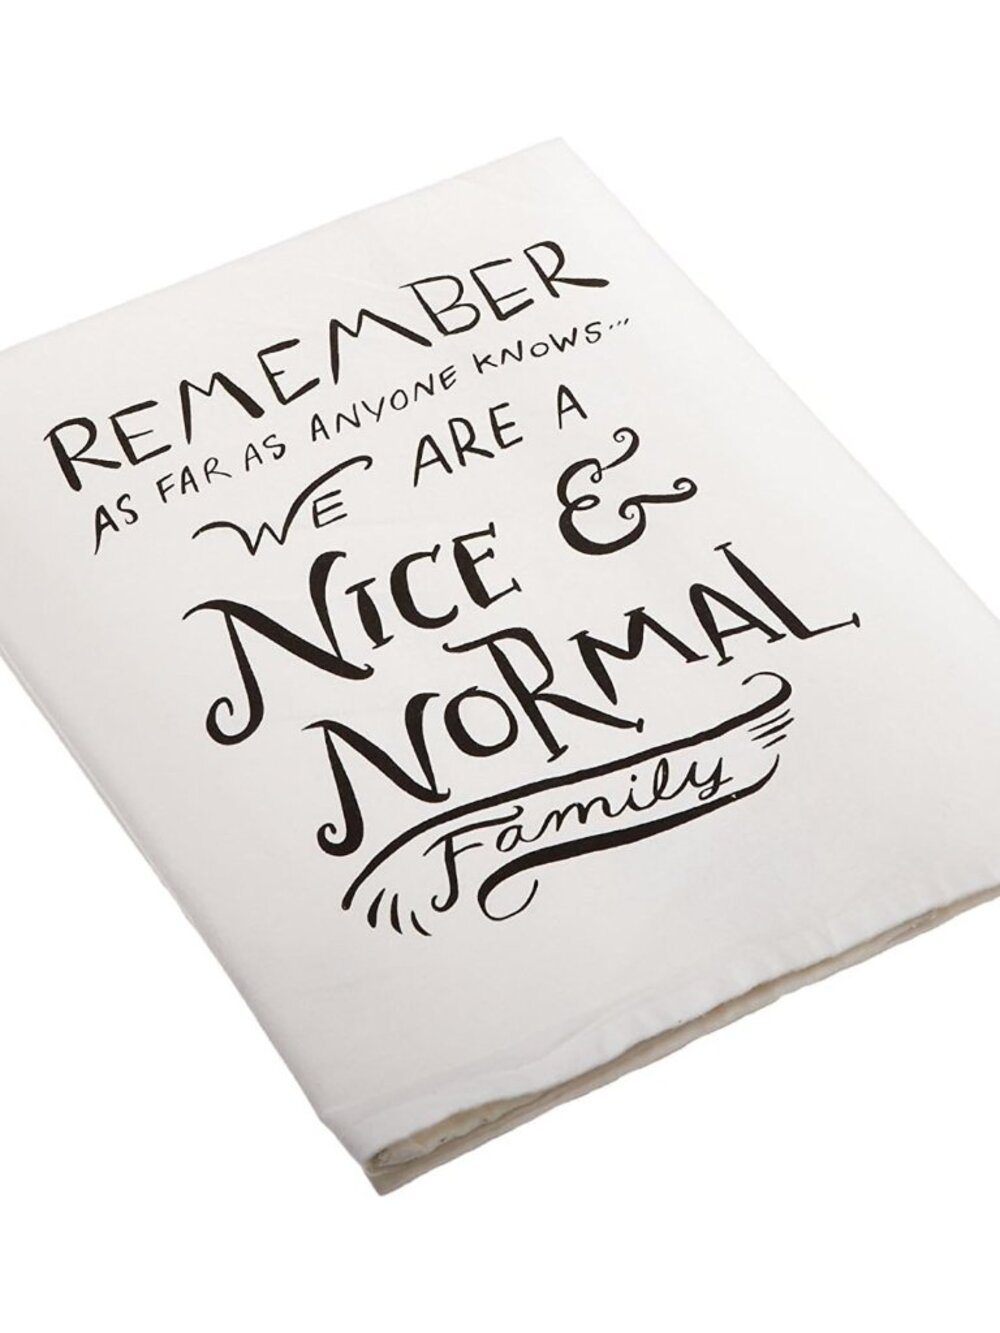 REMEMBER
AS FAR AS ANYONE KNOWS...
WE ARE A
NICE &
NORMAL
Family